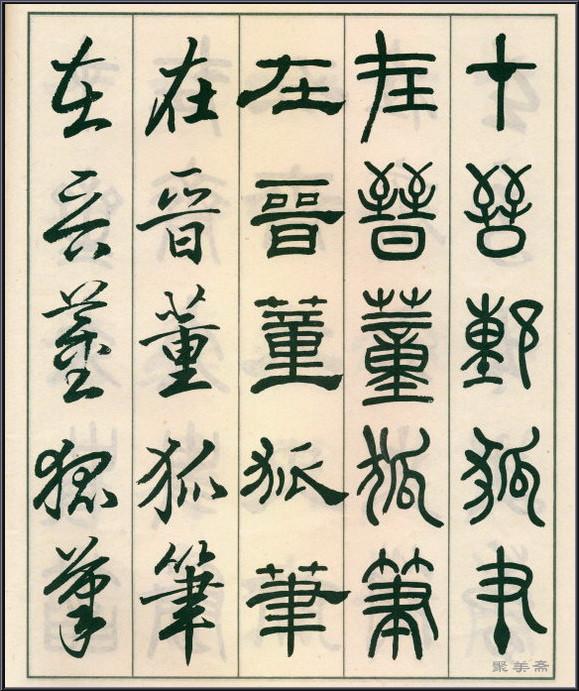 在晉董狐筆
在晉董狐筆
在晉董狐筆
在晉董狐筆
在晉董狐筆
聚美斋